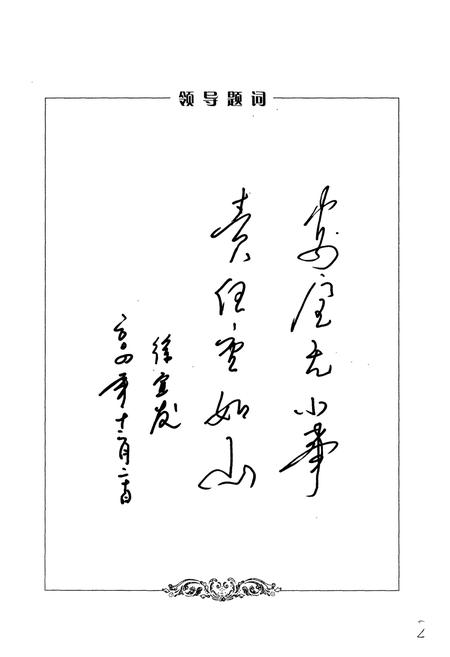 领导题词
安全无小事
责任重如山
徐宜发
二〇〇四年十二月二十日